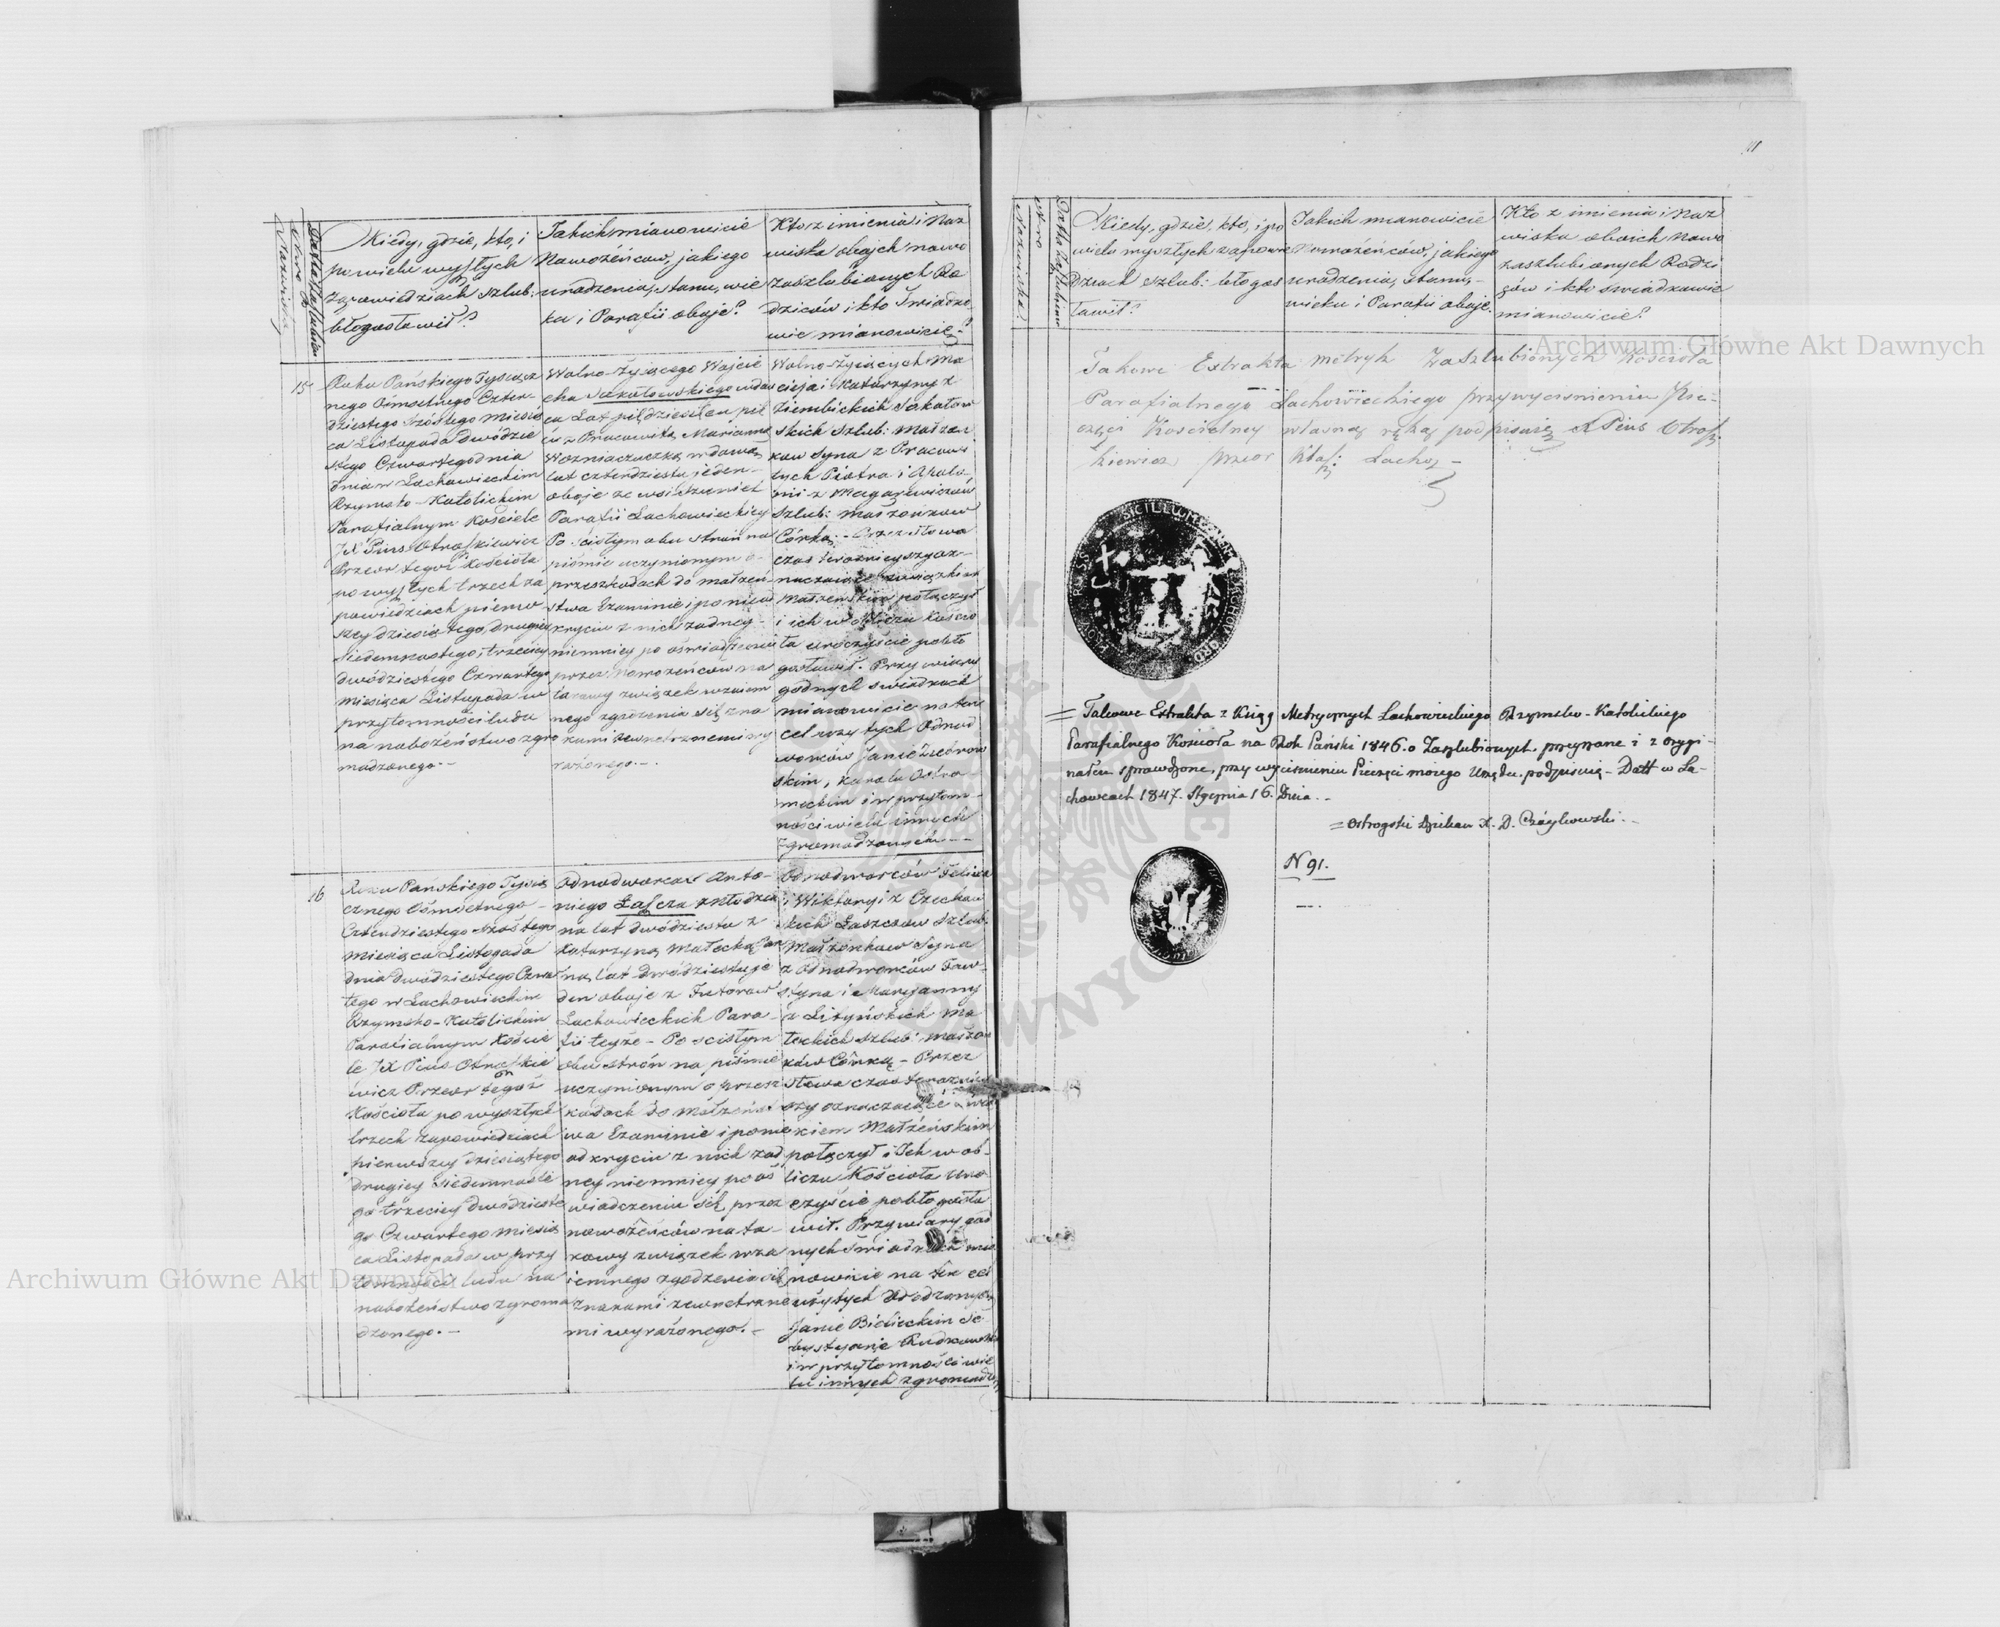 Kiedy, gdzie, kto, i
po wielu wyszłych
Zapowiedziach szlub:
błogosławił?
Jakich mianowicie
Nawożeńców, jakiego
urodzenia, stanu, wie
ku i Parafii oboje?
Kto z imienia i Naz
wiska obojch nowo
zaszlubionych Ro
dziców i kto Świadko
wie mianowicie?
15
Roku Pańskiego Tysiącz
nego Ośmsetnego Czter
dziestego Szóstego Miesią
ca Listopada dwódzie
stego Czwartego dnia
w Lachowieckim
Rzymsko-Katolickim
Parafialnym Kościele
JX Pius Otraszkiewicz
Przeor tegoż Kościoła
po wyszłych trzech za
powiedziach pierw
szey dziesiątego, drugiey
Siedemnastego, trzeciey
dwódziestego Czwartego
miesiąca Listopada w
przytomności ludu
na nabożeństwo zgro
madzonego.—
Wolno-żyjącego Wojcie
cha Sokołowskiego wdow
ca Lat pięćdziesiąt pię
ciu z Pracowitą Marianną
Wozniaczuczką wdową
lat czterdziestu jeden—
oboje ze wsi
Parafii Lachowieckiey
Po scisłym obu strón na
piśmie uczynionym o
przeszkodach do małżeń
stwa Examinie i po nieod
kryciu z nich żadney—
niemniey po oświadczeniu
przez Nowożeńców na
takowy związek wzaiem
nego zgodzenia się zna
kami zewnetrznemi wy
rażonego.—
Wolno-żyiących Ma
cieja i Katarzyny z
Ziembickich Sokołow
skich Szlub: Małżon
kow Syna z Pracowi
tych Piotra i Apolo
nii z Magarewiczów
Szlub: Małżonkow
Córką— Przez słowa
czas teraznieyszy oz—
naczaiące związkiem
Małżenskim połączył
i ich w obliczu Kościo
ła uroczyście pobło
gosławił. Przy wiaro
godnych swiadkach
mianowicie na ten
cel użytych Odnod
worców Janie
skim, Karolu Ostro—
męckim i w przytom—
ności wielu innych
zgromadzonych—
16
Roku Pańskiego Tysią
cznego Ośmsetnego—
Czterdziestego Szóstego
miesiąca Listopada
dnia dwódziestego Czwar
tego w Lachowieckim
Rzymsko-Katolickim
Parafialnym Koście
le JX Pius Otraszkie
wicz Przeor tegoż
Kościoła po wyszłych
trzech zapowiedziach
pierwszey dziesiątego
drugiey siedemnaste
go trzeciey dwódzieste
go Czwartego miesią
ca Listopada w przy
tomności ludu na
nabożeństwo zgroma
dzonego.—
Odnodworcow Anto—
niego Łaszcza młodzia
na lat dwódziestu z
Katarzyną Małecką Pan
ną lat dwódziestu je
den oboje z Futorow
Lachowieckich Para—
fii teyże— Po scisłym
obu strón na piśmie
uczynionym o przesz
kodach do Małżeńst
wa Examinie i po nie
odkryciu z nich żad
ney niemniey po oś
wiadczeniu się przez
nowożeńców na ta—
kowy związek wza
iemnego zgodzenia się
znakami zewnetrzne
mi wyrażonego.—
Odnodworców Felixa
i Wiktoryi z Czechow
skich Łaszczow Szlub:
Małżonkow Syna
z Odnodworców Faw—
styna i Maryanny
z Lityńskich Ma
łeckich Szlub: Małżon
ków Córką— Przez
słowa czas teraznie
szy oznaczaiące
kiem Małżeńskim
połączył i Ich w ob—
liczu Kościoła uro
czyście pobłogosła
wił. Przy wiary god
nych Świadkach mia
nowicie na ten cel
użytych
Janie Bielieckim Se
bystyanie Rudkowsk
i w przytomności wie
lu innych zgromadz
Kiedy, gdzie, kto, i po
wielu wyszłych zapowie
dziach szlub: błogos
ławił?
Jakich mianowicie
Nowożeńców, jakiego
urodzenia, stanu,—
wieku i Parafii oboje.
Kto z imienia i Naz
wiska oboich Nowo
zaszlubionych Rodzi
ców i kto swiadkowie
mianowicie?
Takowe Extrakta metryk Zaszlubionych Kościoła
Parafialnego Lachowieckiego przy wycisnieniu Pie—
częci Kościelney własną ręką podpisuię X Pius Otrasz
kiewicz Przeor Klaszt: Lachow—
= Takowe Extrakta z Ksiąg Metrycznych Lachowieckiego Rzymsko-Katolickiego
Parafialnego Kościoła na Rok Pański 1846. o Zaszlubionych przeyrzane i z orygi—
nałem sprawdzone, przy wyciśnieniu Pieczęci moiego Urzędu podpisuię— Datt w La—
chowcach 1847. Stycznia 16. Dnia.—
= Ostrogski Dziekan X. D.
N 91.
Archiwum Główne Akt Dawnych
Archiwum Główne Akt Dawnych